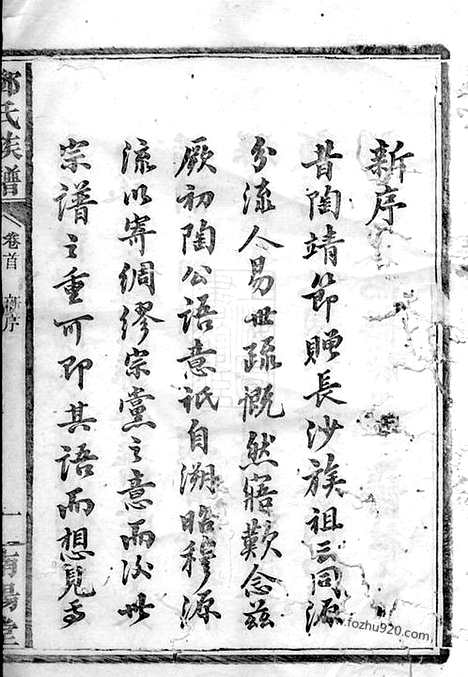 新序
昔陶靖節贈長沙族祖云同源
分流人易世疏慨然寤歎念茲
厥初陶公語意祇自溯昭穆源
流以寄綢繆宗黨之意而後世
宗譜之重可即其語而想見焉
氏族譜
卷首
新序
一
南陽堂
www.fozhu920.com